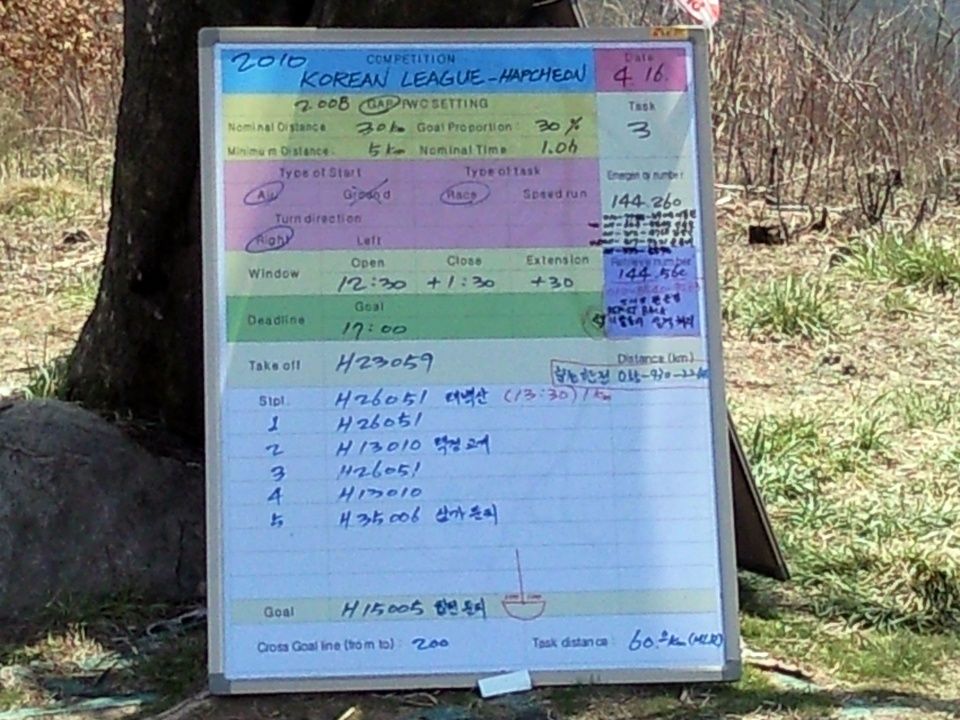 2010 COMPETITION Date
KOREAN LEAGUE - HAPCHEON 4. 16.
2008 GAP PWC SETTING Task
Nominal Distance 30km Goal Proportion : 30 % 3
Minimum Distance : 5 km Nominal Time 1.0h
Type of Start Type of task Emergency number
Air Ground Race Speed run 144.260
Turn direction
Right Left
Open Close Extension Retrieve number
Window 12:30 +1:30 +30 144.560
Goal
Deadline 17:00
Take off H23059 Distance (km)
Stpt. H26051 태백산 (13:30) 1km
1 H26051
2 H13010
3 H26051
4 H13010
5 H35006 삼가
Goal H15005
Cross Goal line (from to) : 200 Task distance : 60.